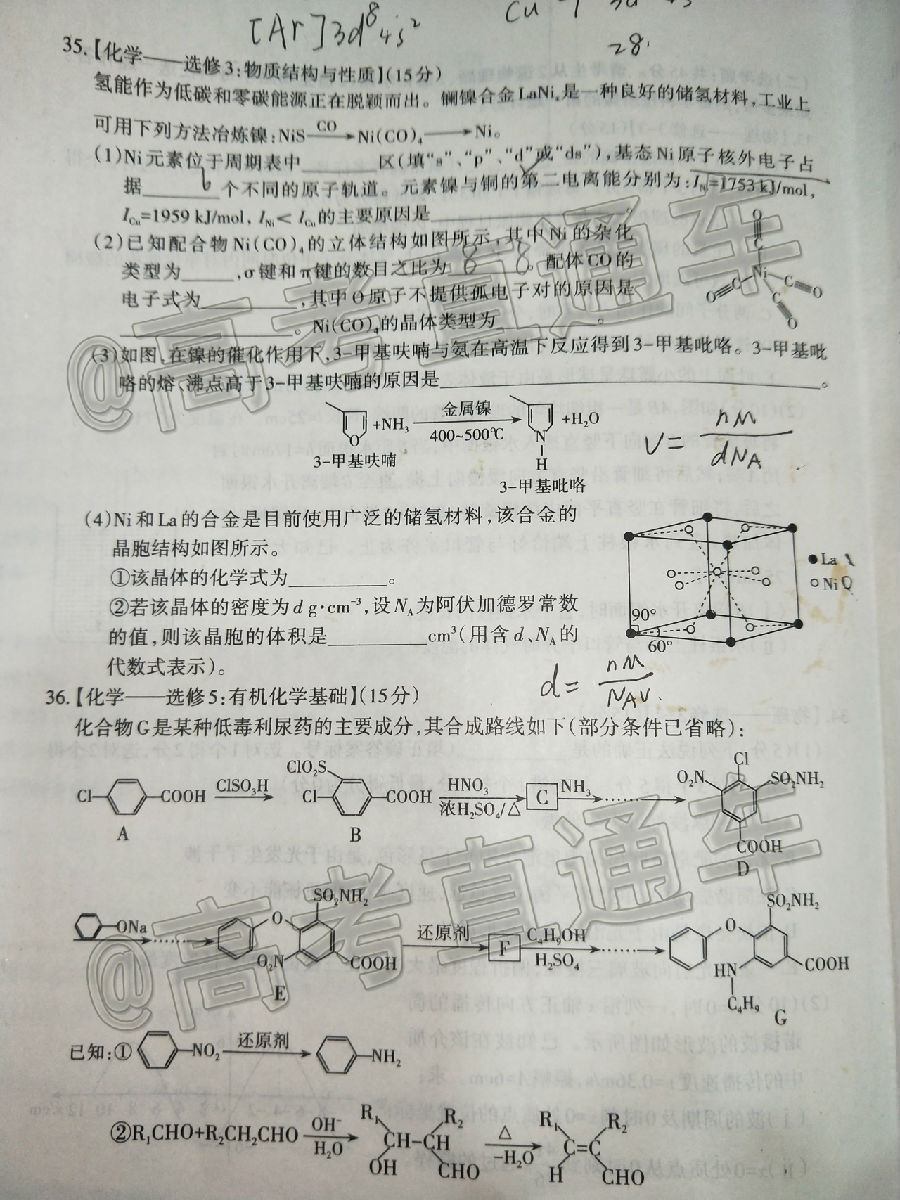 [Ar]3d⁸4s²
28.
35.【化学——选修3:物质结构与性质】(15分)
氢能作为低碳和零碳能源正在脱颖而出。镧镍合金LaNiₙ是一种良好的储氢材料,工业上
可用下列方法冶炼镍:NiS —CO→ Ni(CO)₄ ——→ Ni。
(1)Ni元素位于周期表中______区(填“s”、“p”、“d”或“ds”),基态Ni原子核外电子占
据______个不同的原子轨道。元素镍与铜的第二电离能分别为:I_Ni=1753 kJ/mol,
I_Cu=1959 kJ/mol, I_Ni< I_Cu的主要原因是______________。
(2)已知配合物Ni(CO)₄的立体结构如图所示,其中Ni的杂化
类型为_____,σ键和π键的数目之比为 8:8。配体CO的
电子式为________,其中O原子不提供孤电子对的原因是
______________。Ni(CO)₄的晶体类型为________。
O C Ni C O C O C O
(3)如图,在镍的催化作用下,3-甲基呋喃与氨在高温下反应得到3-甲基吡咯。3-甲基吡
咯的熔、沸点高于3-甲基呋喃的原因是______________________________。
O +NH₃ 金属镍 400~500℃ N H +H₂O
3-甲基呋喃
3-甲基吡咯
V= nM / dNA
(4)Ni和La的合金是目前使用广泛的储氢材料,该合金的
晶胞结构如图所示。
①该晶体的化学式为__________。
②若该晶体的密度为d g·cm⁻³,设N_A为阿伏加德罗常数
的值,则该晶胞的体积是__________cm³(用含d、N_A的
代数式表示)。
La
Ni
90°
60°
d= nM / NAV.
36.【化学——选修5:有机化学基础】(15分)
化合物G是某种低毒利尿药的主要成分,其合成路线如下(部分条件已省略):
Cl COOH A ClSO₃H ClO₂S Cl COOH B HNO₃ 浓H₂SO₄/△ C NH₃ O₂N Cl SO₂NH₂ COOH D
ONa O SO₂NH₂ O₂N COOH E 还原剂 F C₄H₉OH H₂SO₄ O SO₂NH₂ HN COOH C₄H₉ G
已知:① NO₂ 还原剂 NH₂
②R₁CHO+R₂CH₂CHO OH⁻ H₂O R₁ R₂ CH-CH OH CHO △ -H₂O R₁ R₂ C=C H CHO
@高考直通车
@高考直通车